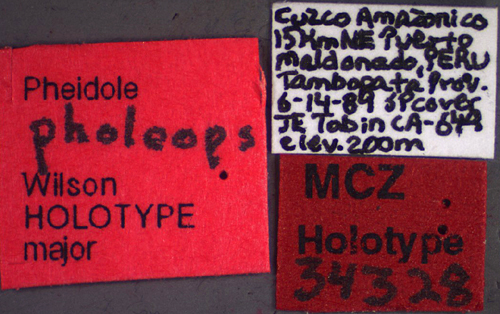 Pheidole
pholeops
Wilson
HOLOTYPE
major
Cuzco Amazonico
15KmNE Puerto
Maldonado, PERU
Tambopata Prov.
6-14-89 spcover
JE Tobin CA-644
elev. 200m
MCZ
Holotype
34328